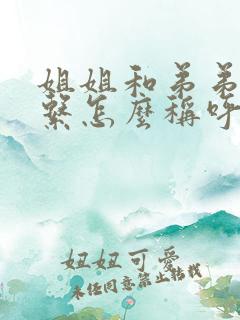 姐姐和弟弟
繫怎麼稱呼
妞妞可愛
未經同意禁止轉載